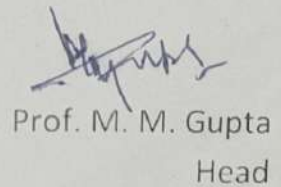 Prof. M. M. Gupta
Head